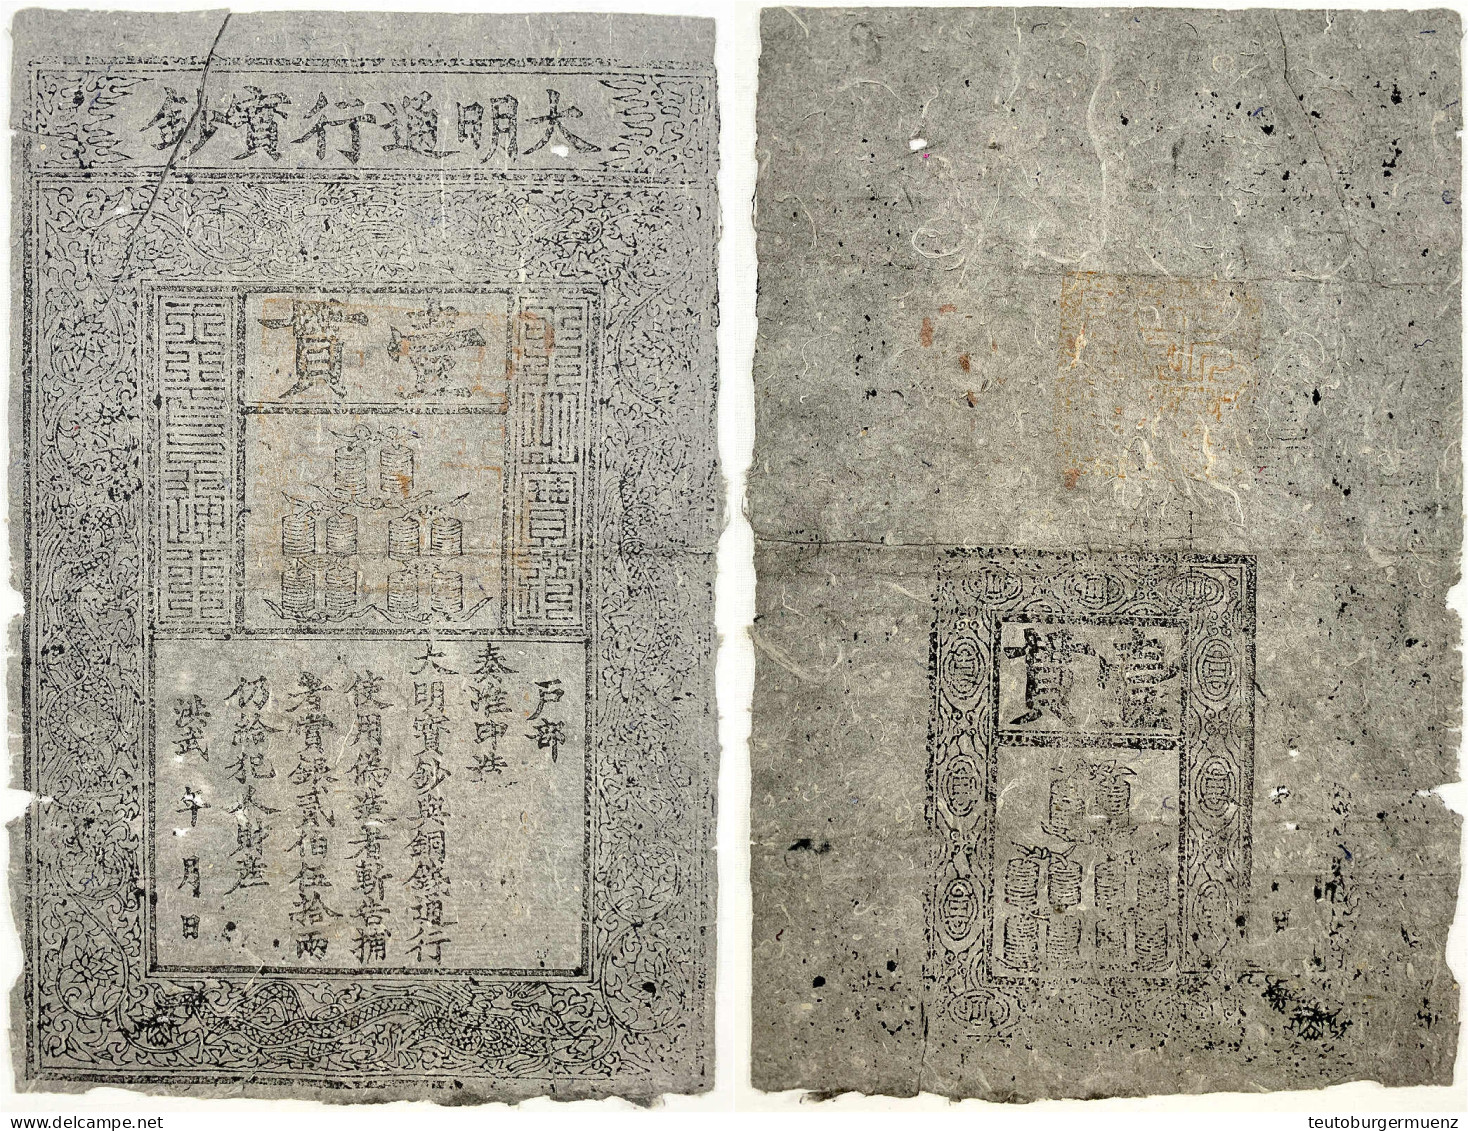 大明通行寶鈔
壹貫
大明寶鈔
天下通行
戶部
奏准印造
大明寶鈔與銅錢通行
使用偽造者斬告捕
者賞銀貳伯伍拾兩
仍給犯人財產
洪武 年 月 日
壹貫
teutoburgermuenz